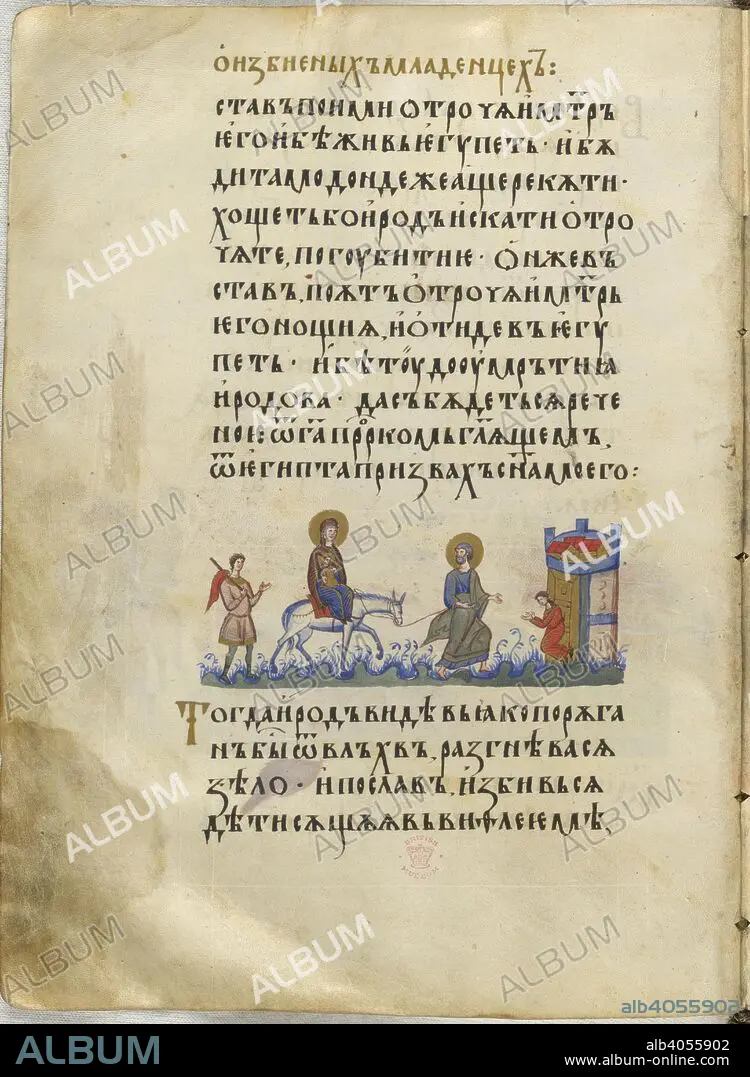 ѻ҆избиеныхъмладенцехъ:
ставъпоимиѻтроча҆имт҃рь
ѥгоибѣживьѥгупеть· ибѫ
дитамодондежеащерекѫти·
хощетьбоиродъискатиѻтро
чѧте, погоубитиѥ· ѻнжевъ
ставъ, поѩтъѻтрочѧ҆имт҃рь
ѥгонощиѫ, иѻтидевъѥгу
петь· ибѣтоудооумрътиꙗ
иродова· дасъбѫдетьсѧрече
ноѥѿг҃апррⷪ҇комьгл҃ѧщемъ,
ѿѥгиптапризвахъсн҃амоего:
Тогдаиродъвидѣвьꙗкопорѫга
нъбыⷭ҇ѿвлъхвъ, разгнѣвасѧ
ѕѣло· ипославъ, избивьсѧ
дѣтисѫщѫѧвьвиѳлеѥмѣ,
BRITISH MUSEUM
ALBUM
alb4055902
ALBUM
alb4055902
www.album-online.com